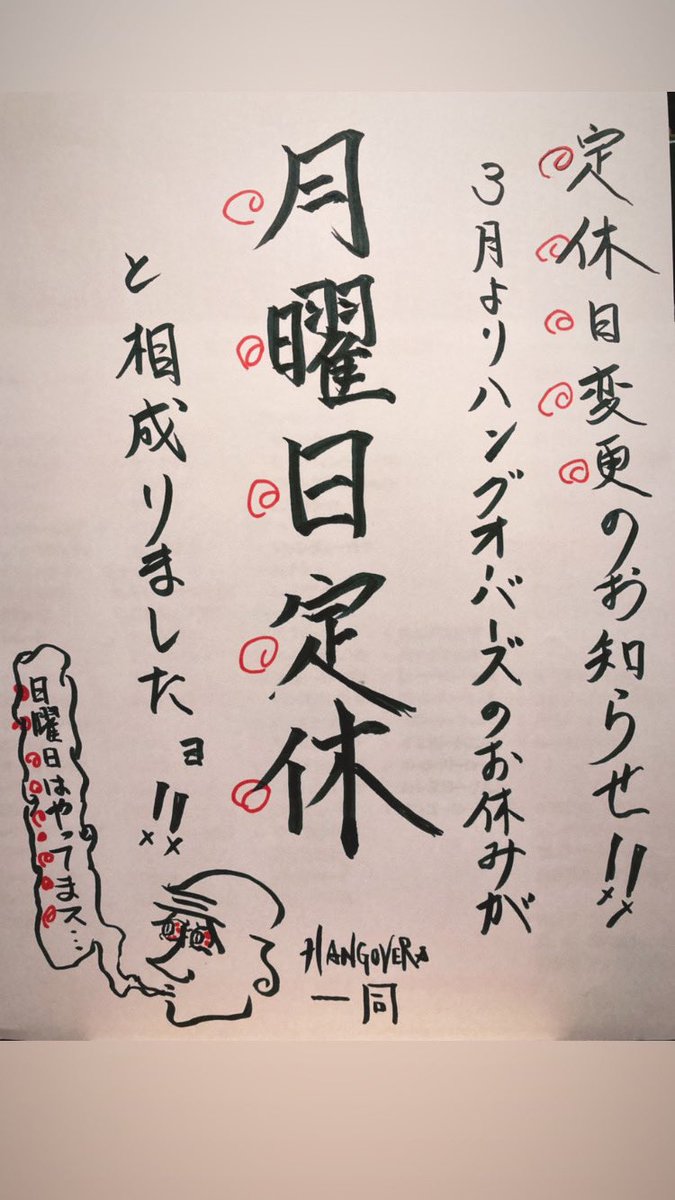 定休日変更のお知らせ!!
3月よりハングオーバーズのお休みが
月曜日定休
と相成りましたョ!!
日曜日はやってまス…
HANGOVERS
一同